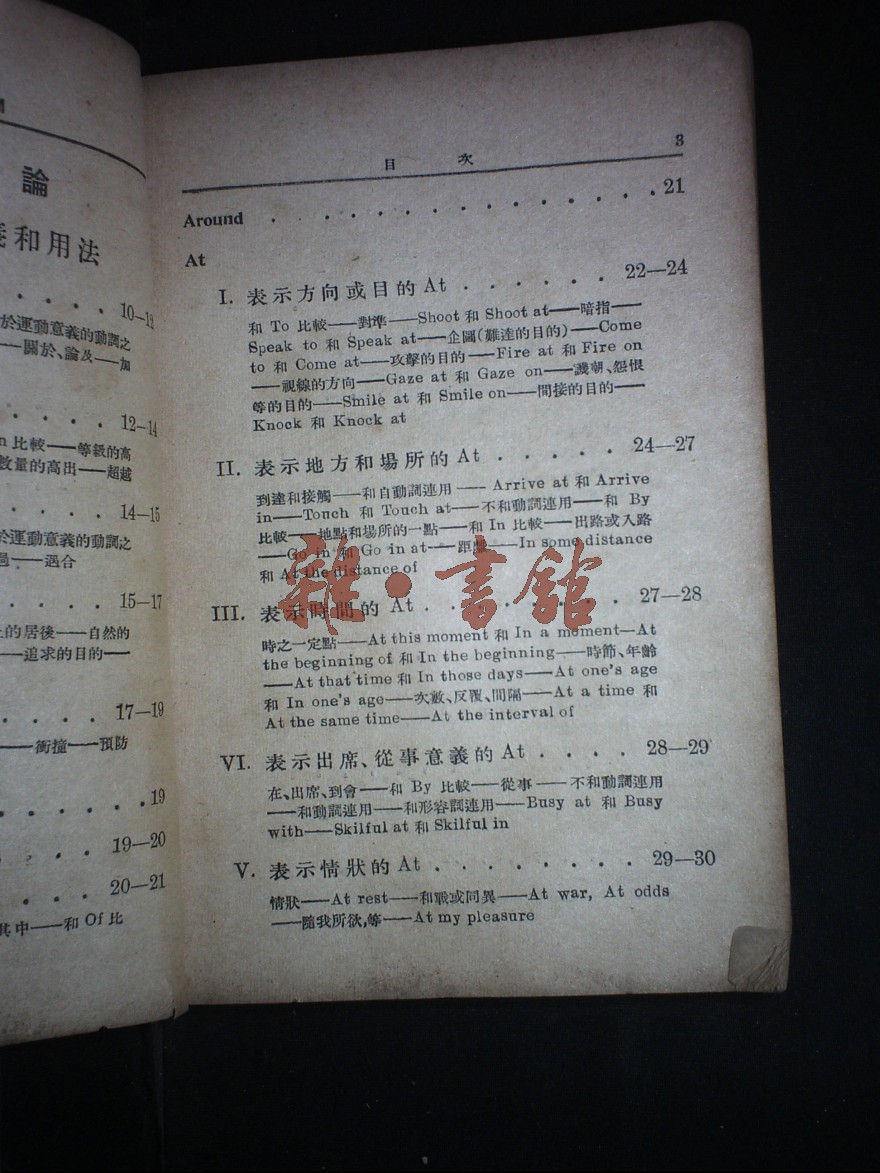 論
和用法
10—13
於運動意義的動詞之
——關於、論及——加
12—14
比較——等級的高
數量的高出——超越
14—15
於運動意義的動詞之
過——適合
15—17
的居後——自然的
——追求的目的——
17—19
——衝撞——預防
19
19—20
20—21
其中——和 Of 比
目 次 3
Around . . . . . . . . . . . . . . . 21
At
I. 表示方向或目的 At . . . . . . 22—24
和 To 比較——對準——Shoot 和 Shoot at——暗指——
Speak to 和 Speak at——企圖(難達的目的)——Come
to 和 Come at——攻擊的目的——Fire at 和 Fire on
——視線的方向——Gaze at 和 Gaze on——譏嘲、怨恨
等的目的——Smile at 和 Smile on——間接的目的——
Knock 和 Knock at
II. 表示地方和場所的 At . . . . . 24—27
到達和接觸——和自動詞連用——Arrive at 和 Arrive
in——Touch 和 Touch at——不和動詞連用——和 By
比較——地點和場所的一點——和 In 比較——出路或入路
——Go in 和 Go in at——距離——In some distance
和 At the distance of
雜·書館
III. 表示時間的 At . . . . . . . . 27—28
時之一定點——At this moment 和 In a moment—At
the beginning of 和 In the beginning——時節、年齡
——At that time 和 In those days——At one's age
和 In one's age——次數、反覆、間隔——At a time 和
At the same time——At the interval of
VI. 表示出席、從事意義的 At . . . . 28—29
在、出席、到會——和 By 比較——從事——不和動詞連用
——和動詞連用——和形容詞連用——Busy at 和 Busy
with——Skilful at 和 Skilful in
V. 表示情狀的 At . . . . . . . . 29—30
情狀——At rest——和戰或同異——At war, At odds
——隨我所欲,等——At my pleasure